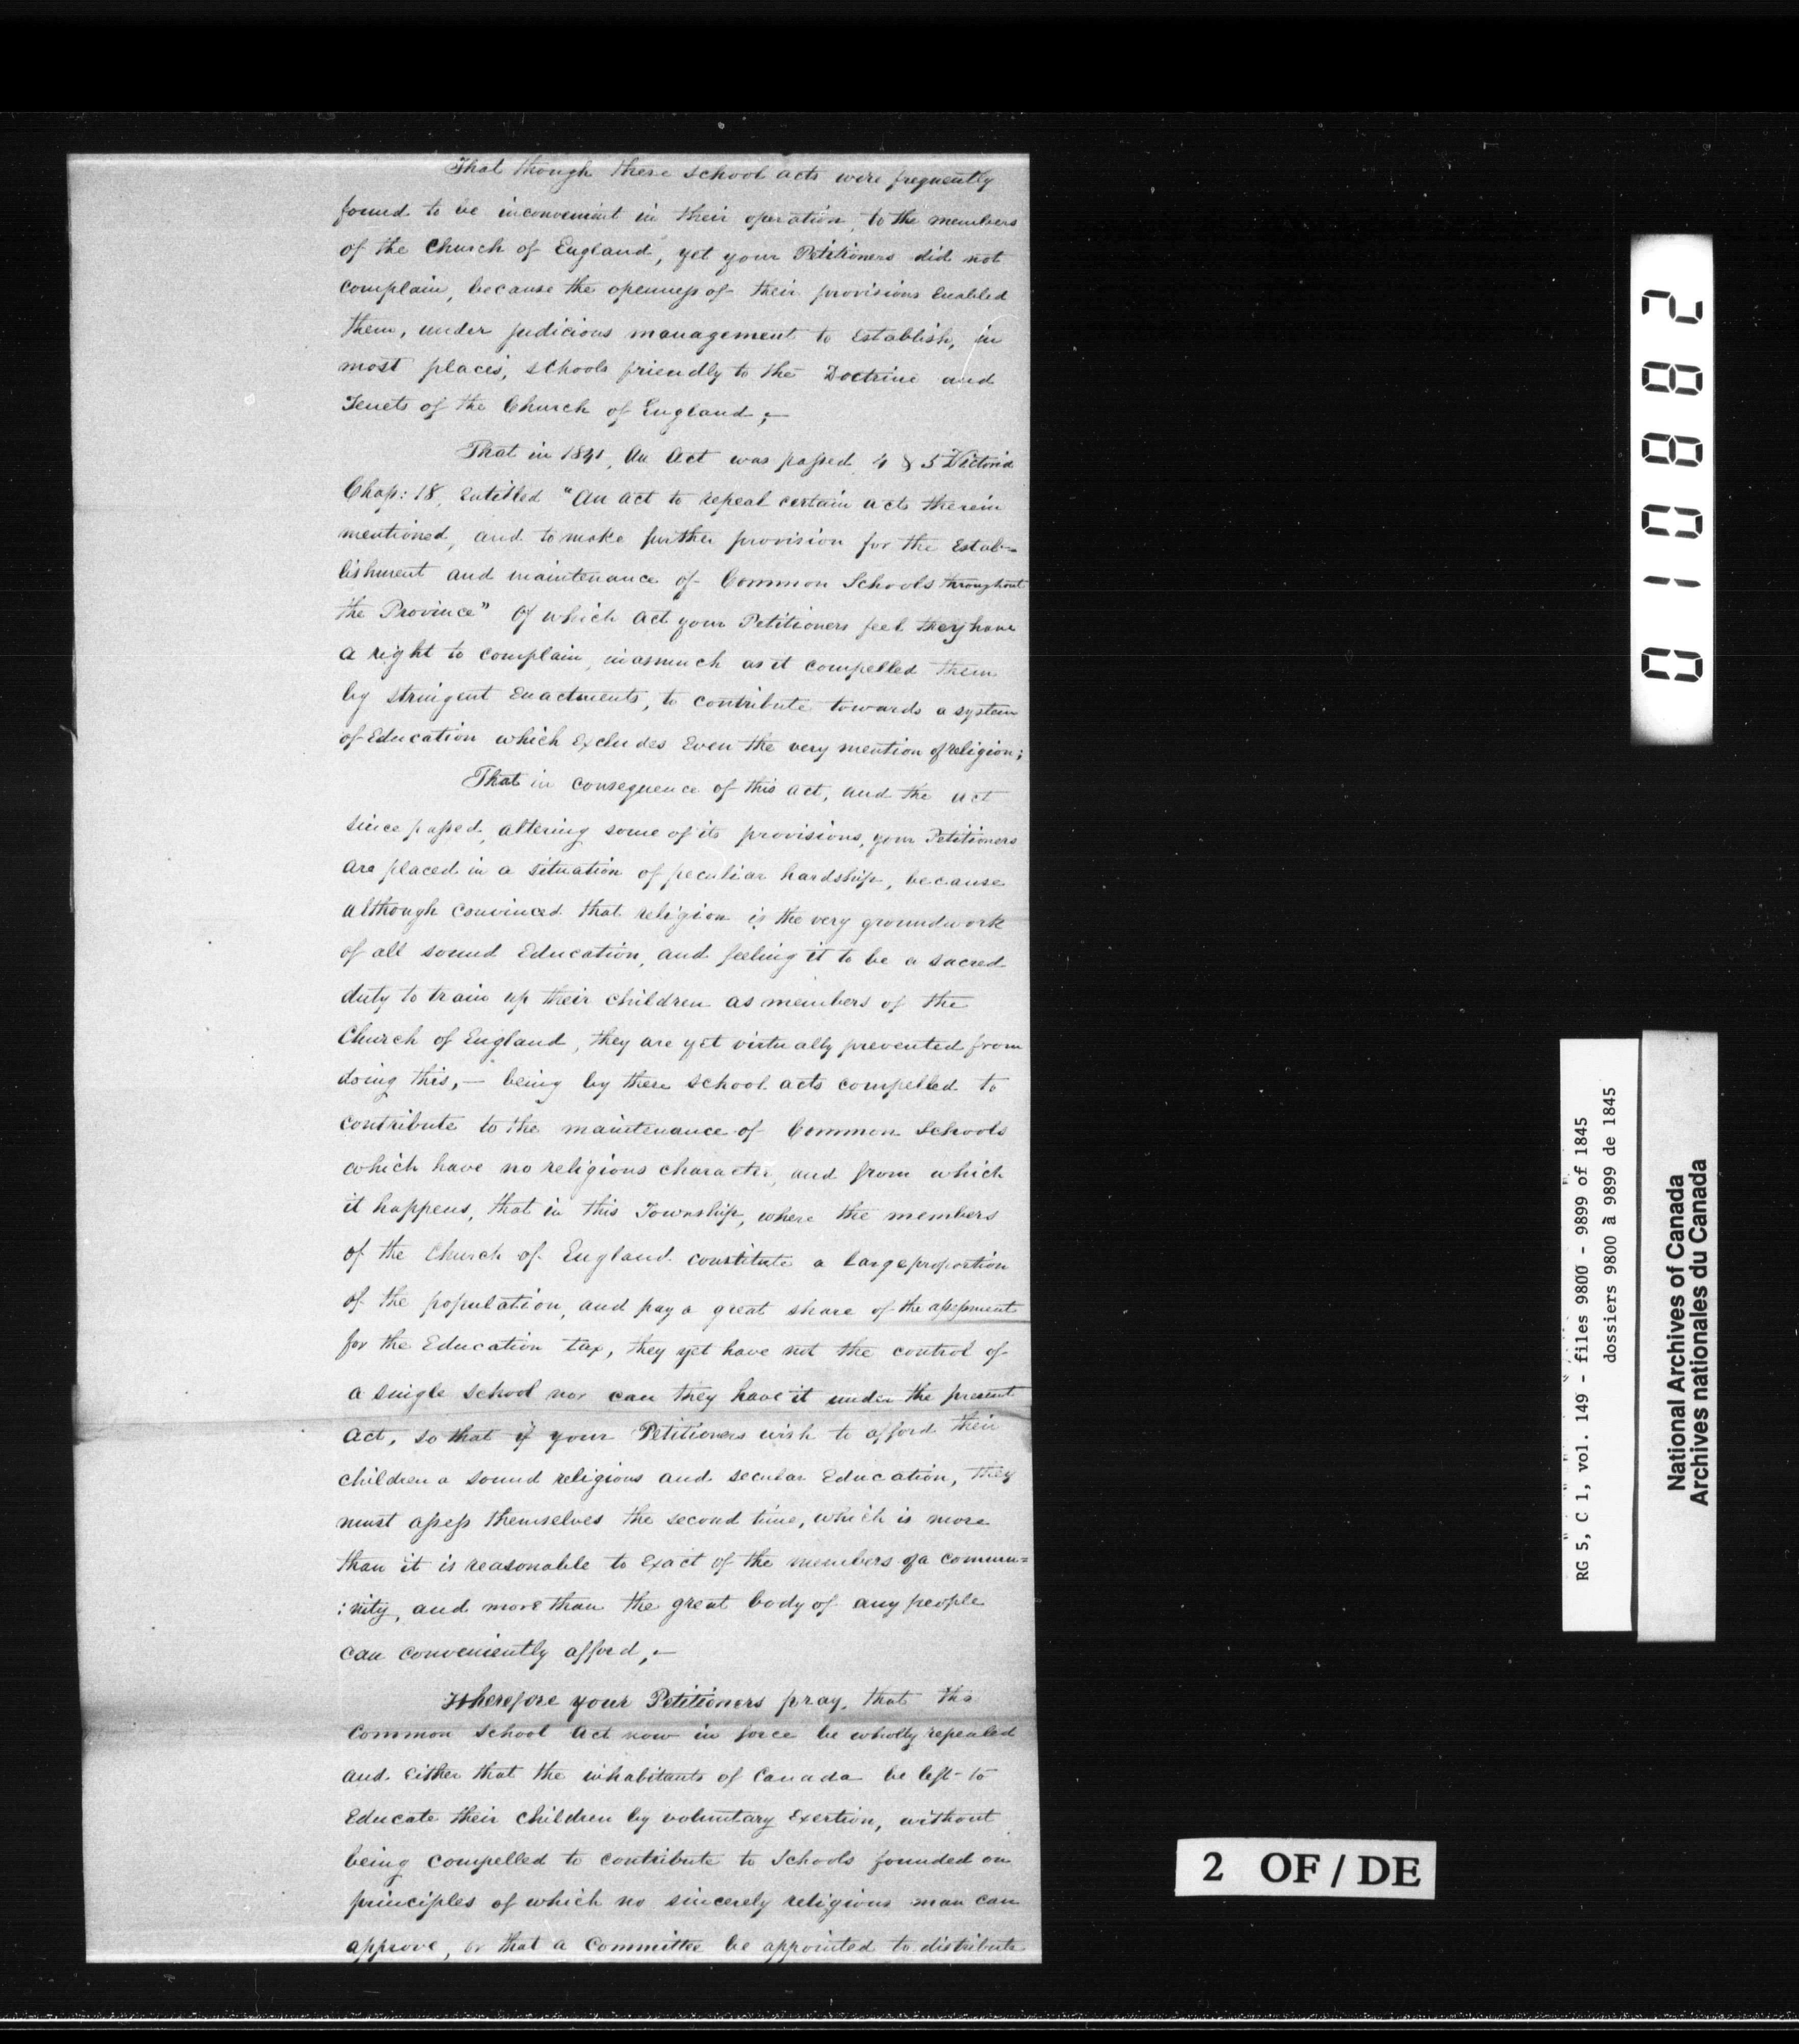 That though these school acts were frequently
found to be inconvenient in their operation, to the members
of the Church of England, yet your Petitioners did not
complain, because the openness of their provisions Enabled
them, under judicious management to Establish, in
most places, schools friendly to the Doctrine and
Tenets of the Church of England,—
That in 1841, An Act was passed, 4 & 5 Victoria
Chap: 18, Entitled "An act to repeal certain acts therein
mentioned, and to make further provision for the Estab=
lishment and maintenance of Common Schools throughout
the Province" Of which Act your Petitioners feel they have
a right to complain, inasmuch as it compelled them
by stringent Enactments, to contribute towards a system
of Education which Excludes Even the very mention of religion;
That in consequence of this act, and the act
since passed, altering some of its provisions, your Petitioners
are placed in a situation of peculiar hardship, because
although convinced that religion is the very groundwork
of all sound Education, and feeling it to be a sacred
duty to train up their children as members of the
Church of England, they are yet virtually prevented from
doing this,— being by these school acts compelled to
contribute to the maintenance of Common Schools
which have no religious character, and from which
it happens, that in this Township, where the members
of the Church of England constitute a large proportion
of the population, and pay a great share of the assessment
for the Education tax, they yet have not the control of
a single school nor can they have it under the present
Act, so that if your Petitioners wish to afford their
children a sound religious and secular Education, they
must assess themselves the second time, which is more
than it is reasonable to Exact of the members of a commu=
:nity, and more than the great body of any people
can conveniently afford,—
Wherefore your Petitioners pray, that the
Common School Act now in force be wholly repealed
and Either that the inhabitants of Canada be left to
Educate their children by voluntary Exertion, without
being compelled to contribute to Schools founded on
principles of which no sincerely religious man can
approve, or that a Committee be appointed to distribute
010882
RG 5, C 1, vol. 149 - files 9800 - 9899 of 1845
dossiers 9800 à 9899 de 1845
National Archives of Canada
Archives nationales du Canada
2 OF / DE